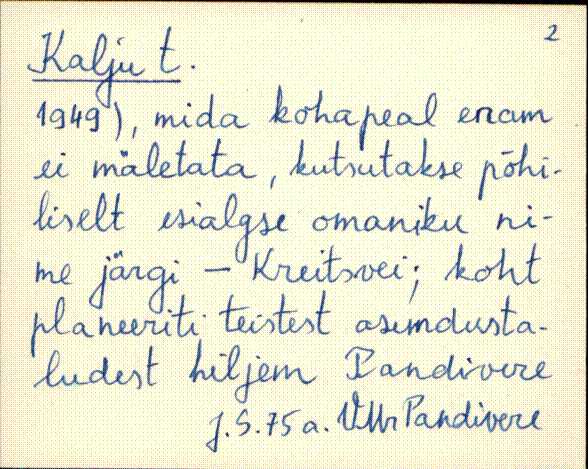 2
Kalju t.
1949), mida kohapeal enam
ei mäletata, kutsutakse põhi-
liselt esialgse omaniku ni-
me järgi – Kreitsvei; koht
planeeriti teistest asundusta-
ludest hiljem Pandivere
J.S. 75 a. VMr Pandivere